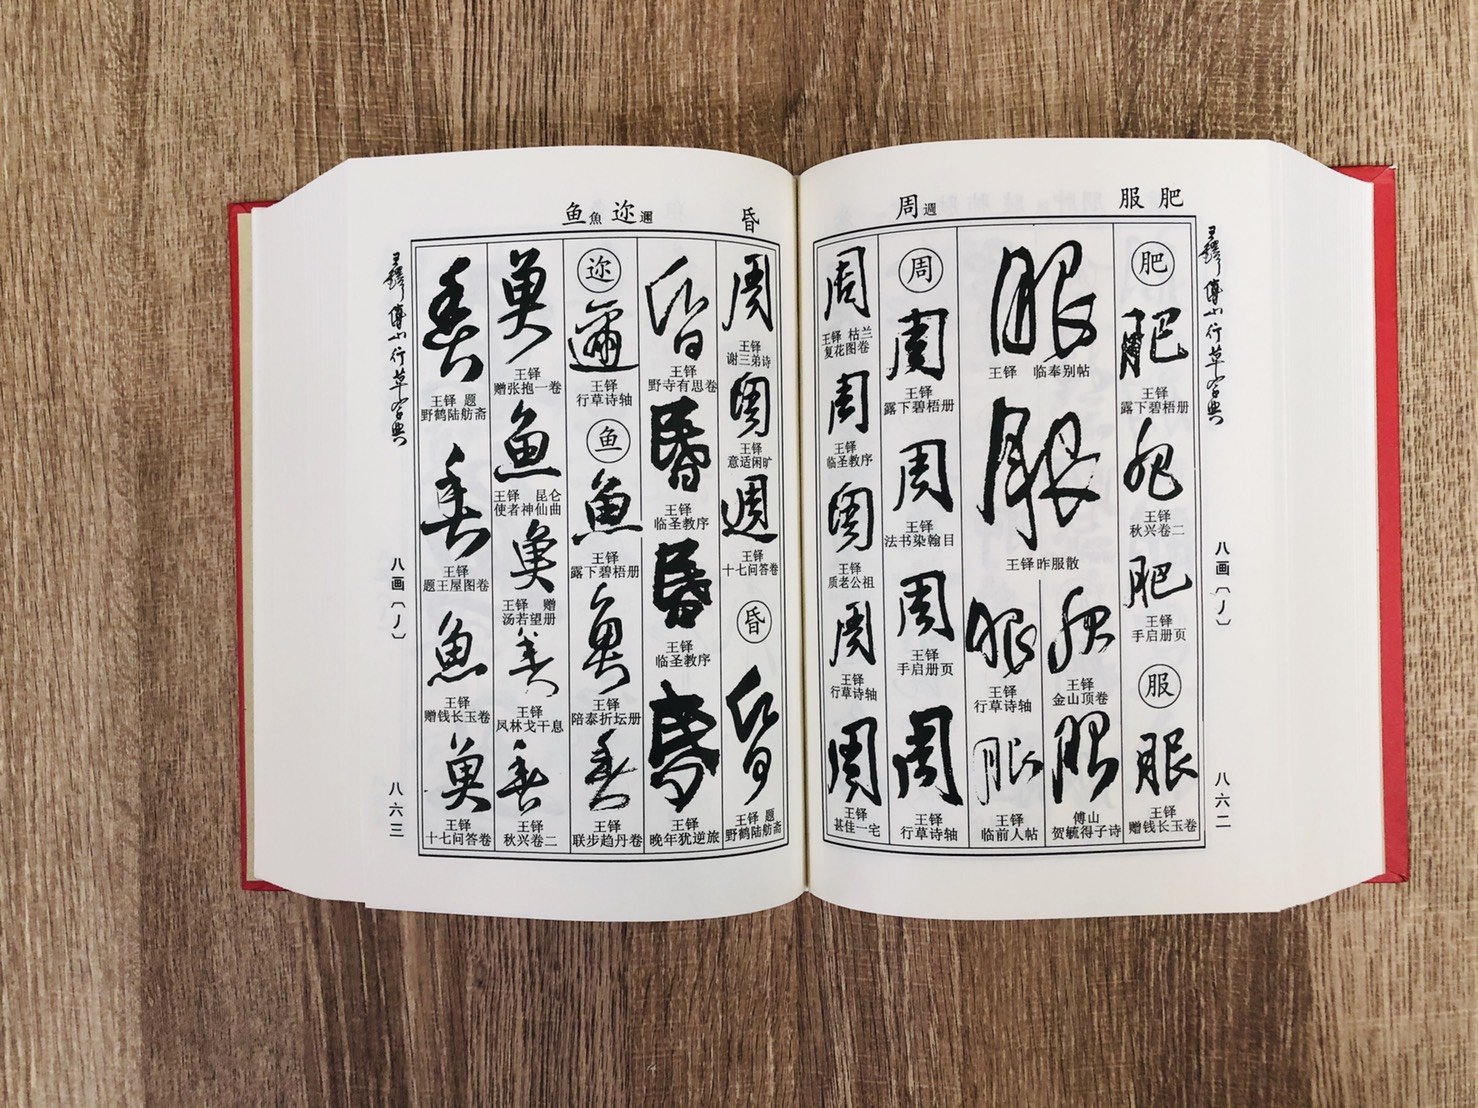 肥
服
周週
王鐸傅山行草字典
八画〔丿〕
八六二
肥
肥
王铎
露下碧梧册
肥
王铎
秋兴卷二
肥
王铎
手启册页
服
服
王铎
赠钱长玉卷
服
王铎 临奉别帖
服
王铎昨服散
服
王铎
金山顶卷
服
傅山
贺毓得子诗
服
王铎
行草诗轴
服
王铎
临前人帖
周
周
王铎
露下碧梧册
周
王铎
法书染翰目
周
王铎
手启册页
周
王铎
行草诗轴
周
王铎 枯兰
复花图卷
周
王铎
临圣教序
周
王铎
质老公祖
周
王铎
行草诗轴
周
王铎
甚佳一宅
昏
迩邇
鱼魚
周
王铎
谢三弟诗
周
王铎
意适闲旷
週
王铎
十七问答卷
昏
昏
王铎 题
野鹤陆舫斋
昏
王铎
野寺有思卷
昏
王铎
临圣教序
昏
王铎
临圣教序
昏
王铎
晚年犹逆旅
迩
邇
王铎
行草诗轴
鱼
魚
王铎
露下碧梧册
魚
王铎
陪泰折坛册
魚
王铎
联步趋丹卷
魚
王铎
赠张抱一卷
魚
王铎 昆仑
使者神仙曲
魚
王铎 赠
汤若望册
魚
王铎
凤林戈干息
魚
王铎
秋兴卷二
魚
王铎 题
野鹤陆舫斋
魚
王铎
题王屋图卷
魚
王铎
赠钱长玉卷
魚
王铎
十七问答卷
王鐸傅山行草字典
八画〔丿〕
八六三